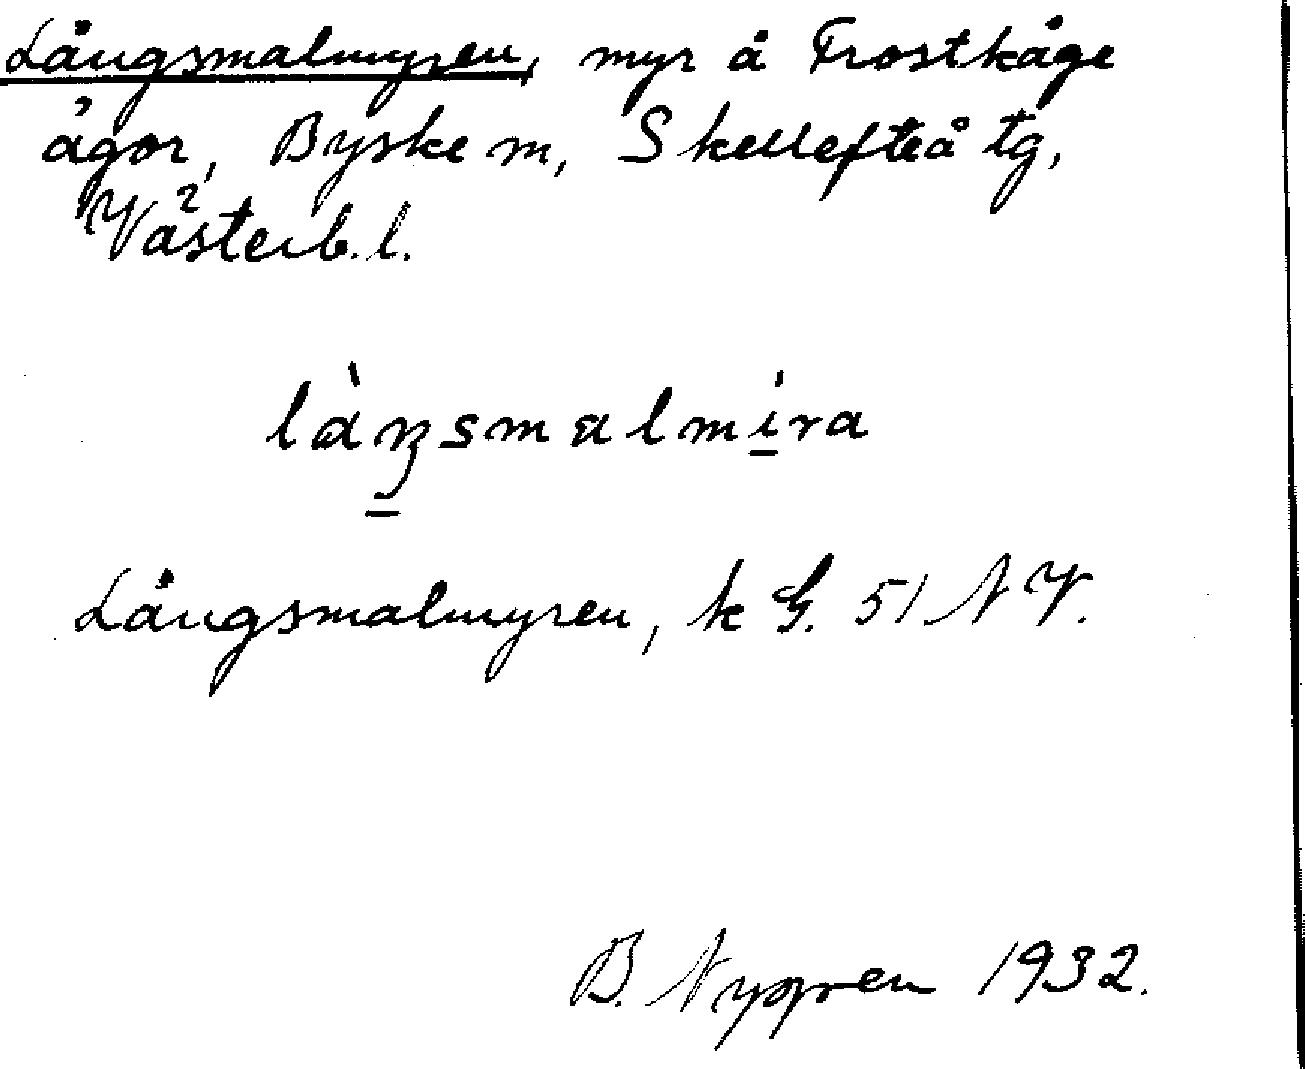 Långsmalmyren, myr å Frostkåge
ägor, Byske sn, Skellefteå tg,
Västerb. l.
làŋsmalmíra
Långsmalmyren, k G. 51 N V.
B. Nygren 1932.